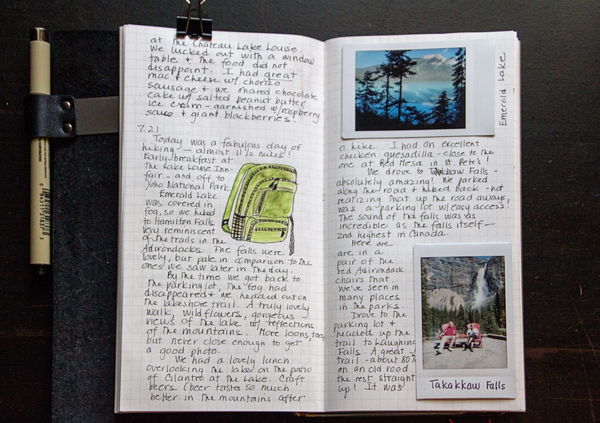 at the Chateau Lake Louise.
We lucked out with a window
table + the food did not
disappoint. I had great
mac + cheese w/ chorizo
sausage + we shared chocolate
cake w/ salted peanut butter
ice cream - garnished w/ raspberry
sauce + giant blackberries!
7.21
Today was a fabulous day of
hiking - almost 11 1/2 miles!
Early breakfast at
the Lake Louise Inn -
fair - and off to
Yoho National Park
Emerald Lake
was covered in
fog, so we hiked
to Hamilton Falls
very reminiscent
of the trails in the
Adirondacks. The falls were
lovely, but pale in comparison to the
ones we saw later in the day.
By the time we got back to
the parking lot, the fog had
disappeared + we headed out on
the lakeshore trail. A truly lovely
walk, wildflowers, gorgeous
views of the lake w/ reflections
of the mountains. More loons, too,
but never close enough to get
a good photo.
We had a lovely lunch
overlooking the lake on the patio
of Cilantro at the Lake. Craft
beers (beer tastes so much
better in the mountains after
Emerald Lake
a hike. I had an excellent
chicken quesadilla - close to the
one at Red Mesa in St. Pete's!
We drove to Takkaw Falls -
absolutely amazing! We parked
along the road + hiked back - not
realizing that up the road a ways,
was a parking lot w/ easy access.
The sound of the falls was as
incredible as the falls itself -
2nd highest in Canada.
Here we
are in a
pair of the
red Adirondack
chairs that
we've seen in
many places
in the parks.
Drove to the
parking lot +
headed up the
trail to Laughing
Falls. A great
trail - about 80%
on an old road
the rest straight
up! It was
Takakkaw Falls